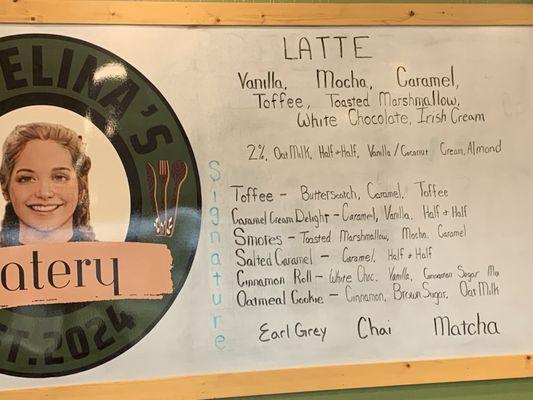 ELINA'S
atery
ST. 2024
LATTE
Vanilla, Mocha, Caramel,
Toffee, Toasted Marshmallow,
White Chocolate, Irish Cream
2%, Oat Milk, Half + Half, Vanilla / Coconut Cream, Almond
Signature
Toffee - Butterscotch, Caramel, Toffee
Caramel Cream Delight - Caramel, Vanilla, Half + Half
Smores - Toasted Marshmallow, Mocha, Caramel
Salted Caramel - Caramel, Half + Half
Cinnamon Roll - White Choc, Vanilla, Cinnamon Sugar Mix
Oatmeal Cookie - Cinnamon, Brown Sugar, Oat Milk
Earl Grey Chai Matcha